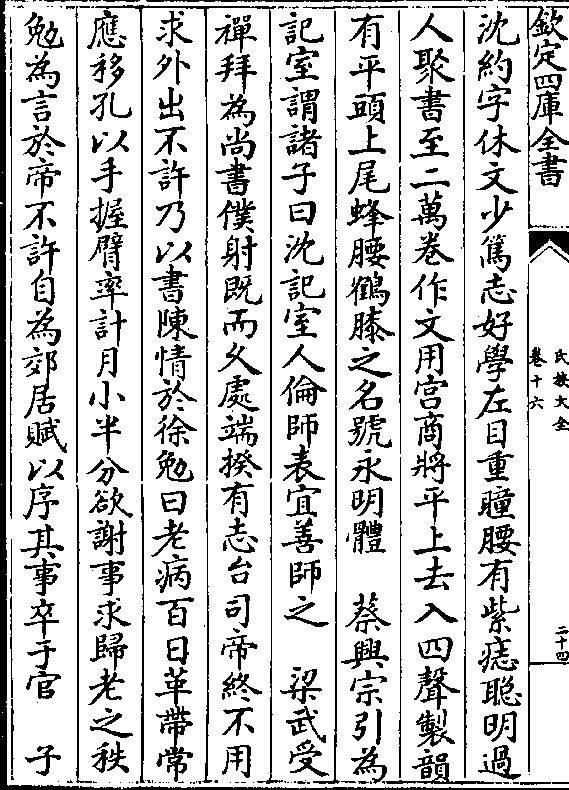 欽定四庫全書
氏族大全
卷十六
二十四
沈約字休文少篤志好學左目重瞳腰有紫痣聰明過
人聚書至二萬卷作文用宫商將平上去入四聲製韻
有平頭上尾蜂腰鶴膝之名號永明體　蔡興宗引為
記室謂諸子曰沈記室人倫師表宜善師之　梁武受
禪拜為尚書僕射既而久處端揆有志台司帝終不用
求外出不許乃以書陳情於徐勉曰老病百日革帶常
應移孔以手握臂率計月小半分欲謝事求歸老之秩
勉為言於帝不許自為郊居賦以序其事卒于官　子